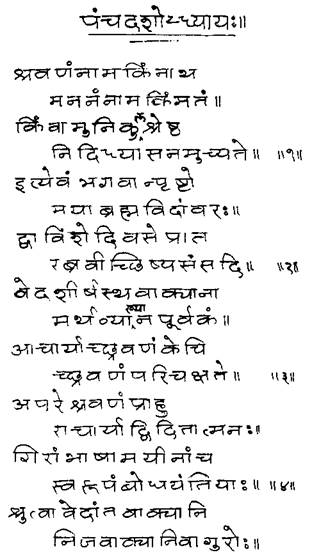 पंचदशोध्यायः॥
श्रवणंनामकिंनाथ
मननंनामकिंमतं॥
किंवामुनिकुलश्रेष्ठ
निदिध्यासनमुच्यते॥ ॥१॥
इत्येवंभगवान्पृष्टो
मयाब्रह्मविदांवरः॥
द्वाविंशेदिवसेप्रात
रब्रवीच्छिष्यसंसदि॥ ॥२॥
वेदशीर्षस्थवाक्याना
मर्थव्याख्यानपूर्वकं॥
आचार्याच्छ्रवणंकेचि
च्छ्रवणंपरिचक्षते॥ ॥३॥
अपरेश्रवणंप्राहु
राचार्याद्विदितात्मनः॥
गिरांभाषामयीनांच
स्वरूपंबोधयंतियाः॥ ॥४॥
श्रुत्वावेदांतवाक्यानि
निजवाक्यानिवागुरोः॥